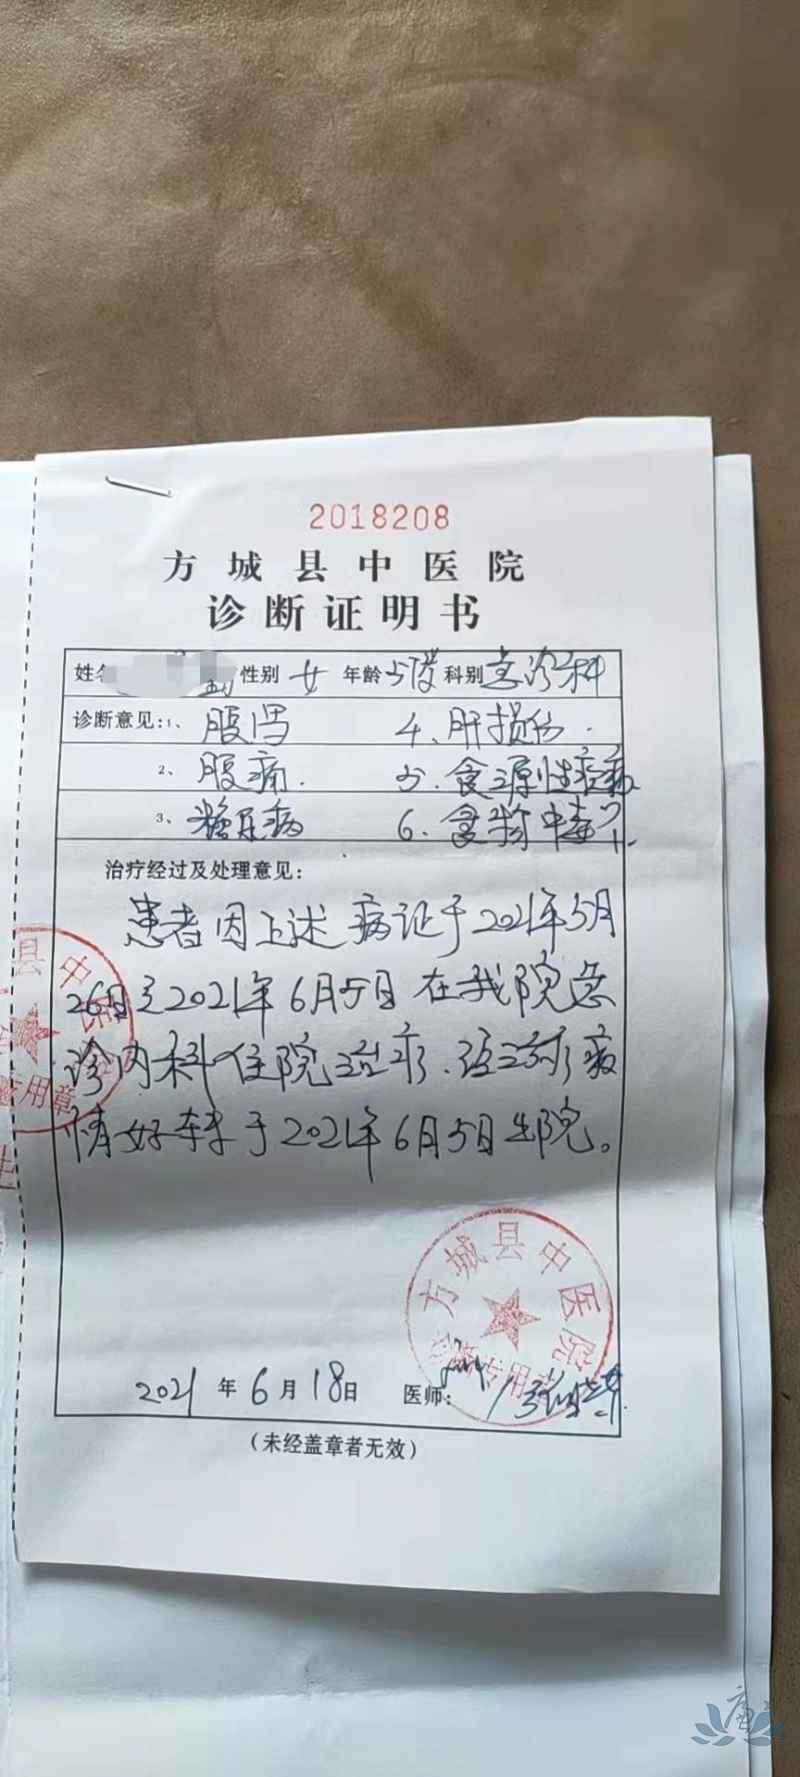 2018208
方城县中医院
诊断证明书
姓名 性别 女 年龄 科别 急诊科
诊断意见:1、腹泻 4、肝损伤.
2、腹痛. 5.食源性疾病
3、糖尿病 6.食物中毒?
治疗经过及处理意见:
患者因上述病证于2021年5月
26日至2021年6月5日在我院急
诊内科住院治疗.经治疗病
情好转于2021年6月5日出院。
县中医
用章
方城县中医院
专用
2021年6月18日 医师:
(未经盖章者无效)